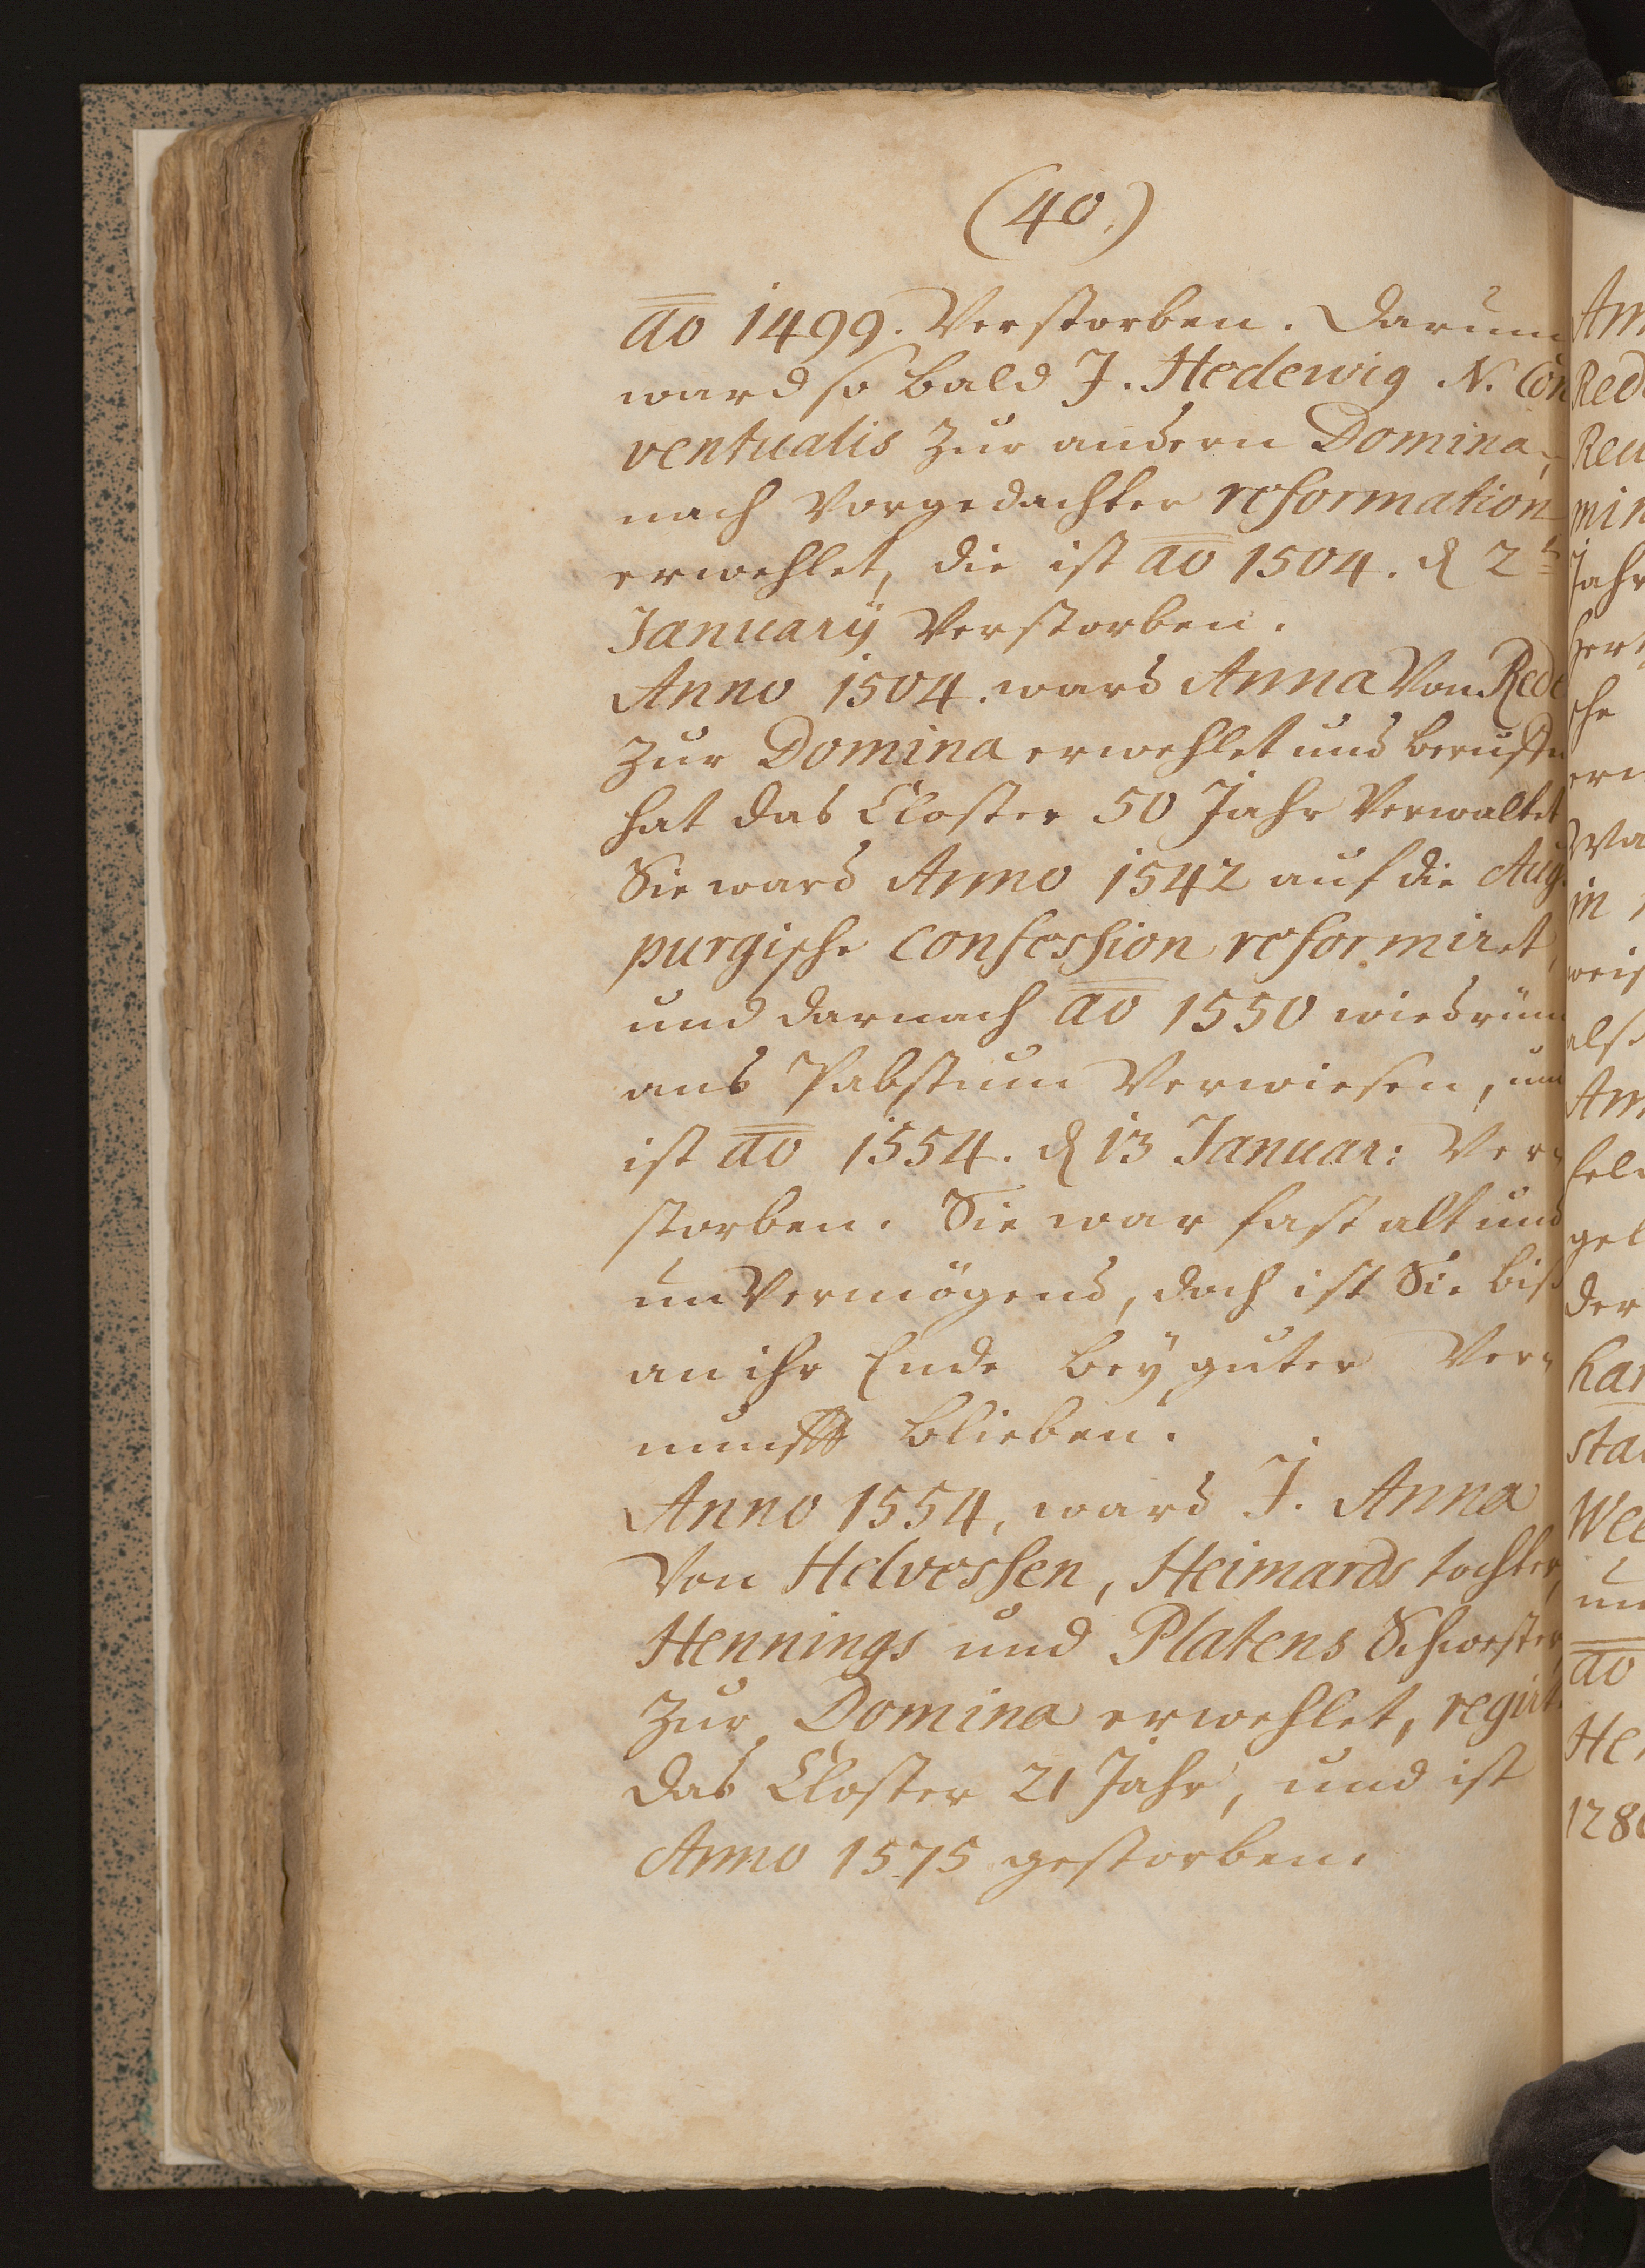 (40.)
ao 1499. Verstorben. Darum
ward so bald J. Hedewig N. Con
ventualis zur andern Domina,
nach Vorgedachter reformation
erwehlet, die ist ao 1504. d 2t
Januarij Verstorben.
Anno 1504. ward Anna Von Rede
zur Domina erwehlet und
hat das Closter 50 Jahr Verwaltet
Sie ward Anno 1542 auf die Aug
purgische confession reformiret,
und darnach ao 1550 wiedrüm
ans Pabstum Verwiesen, und
ist ao 1554. d 13 Januar: Ver-
storben. Sie war fast alt und
unVermögend, doch ist Sie biß
an ihr Ende bey guter Ver-
nunfft blieben.
Anno 1554, ward J. Anna
Von Helversen, Heimards tochter,
Hennings und Platens Schwester,
zur Domina erwehlet, regirt
das Closter 21 Jahr, und ist
Anno 1575 gestorben.